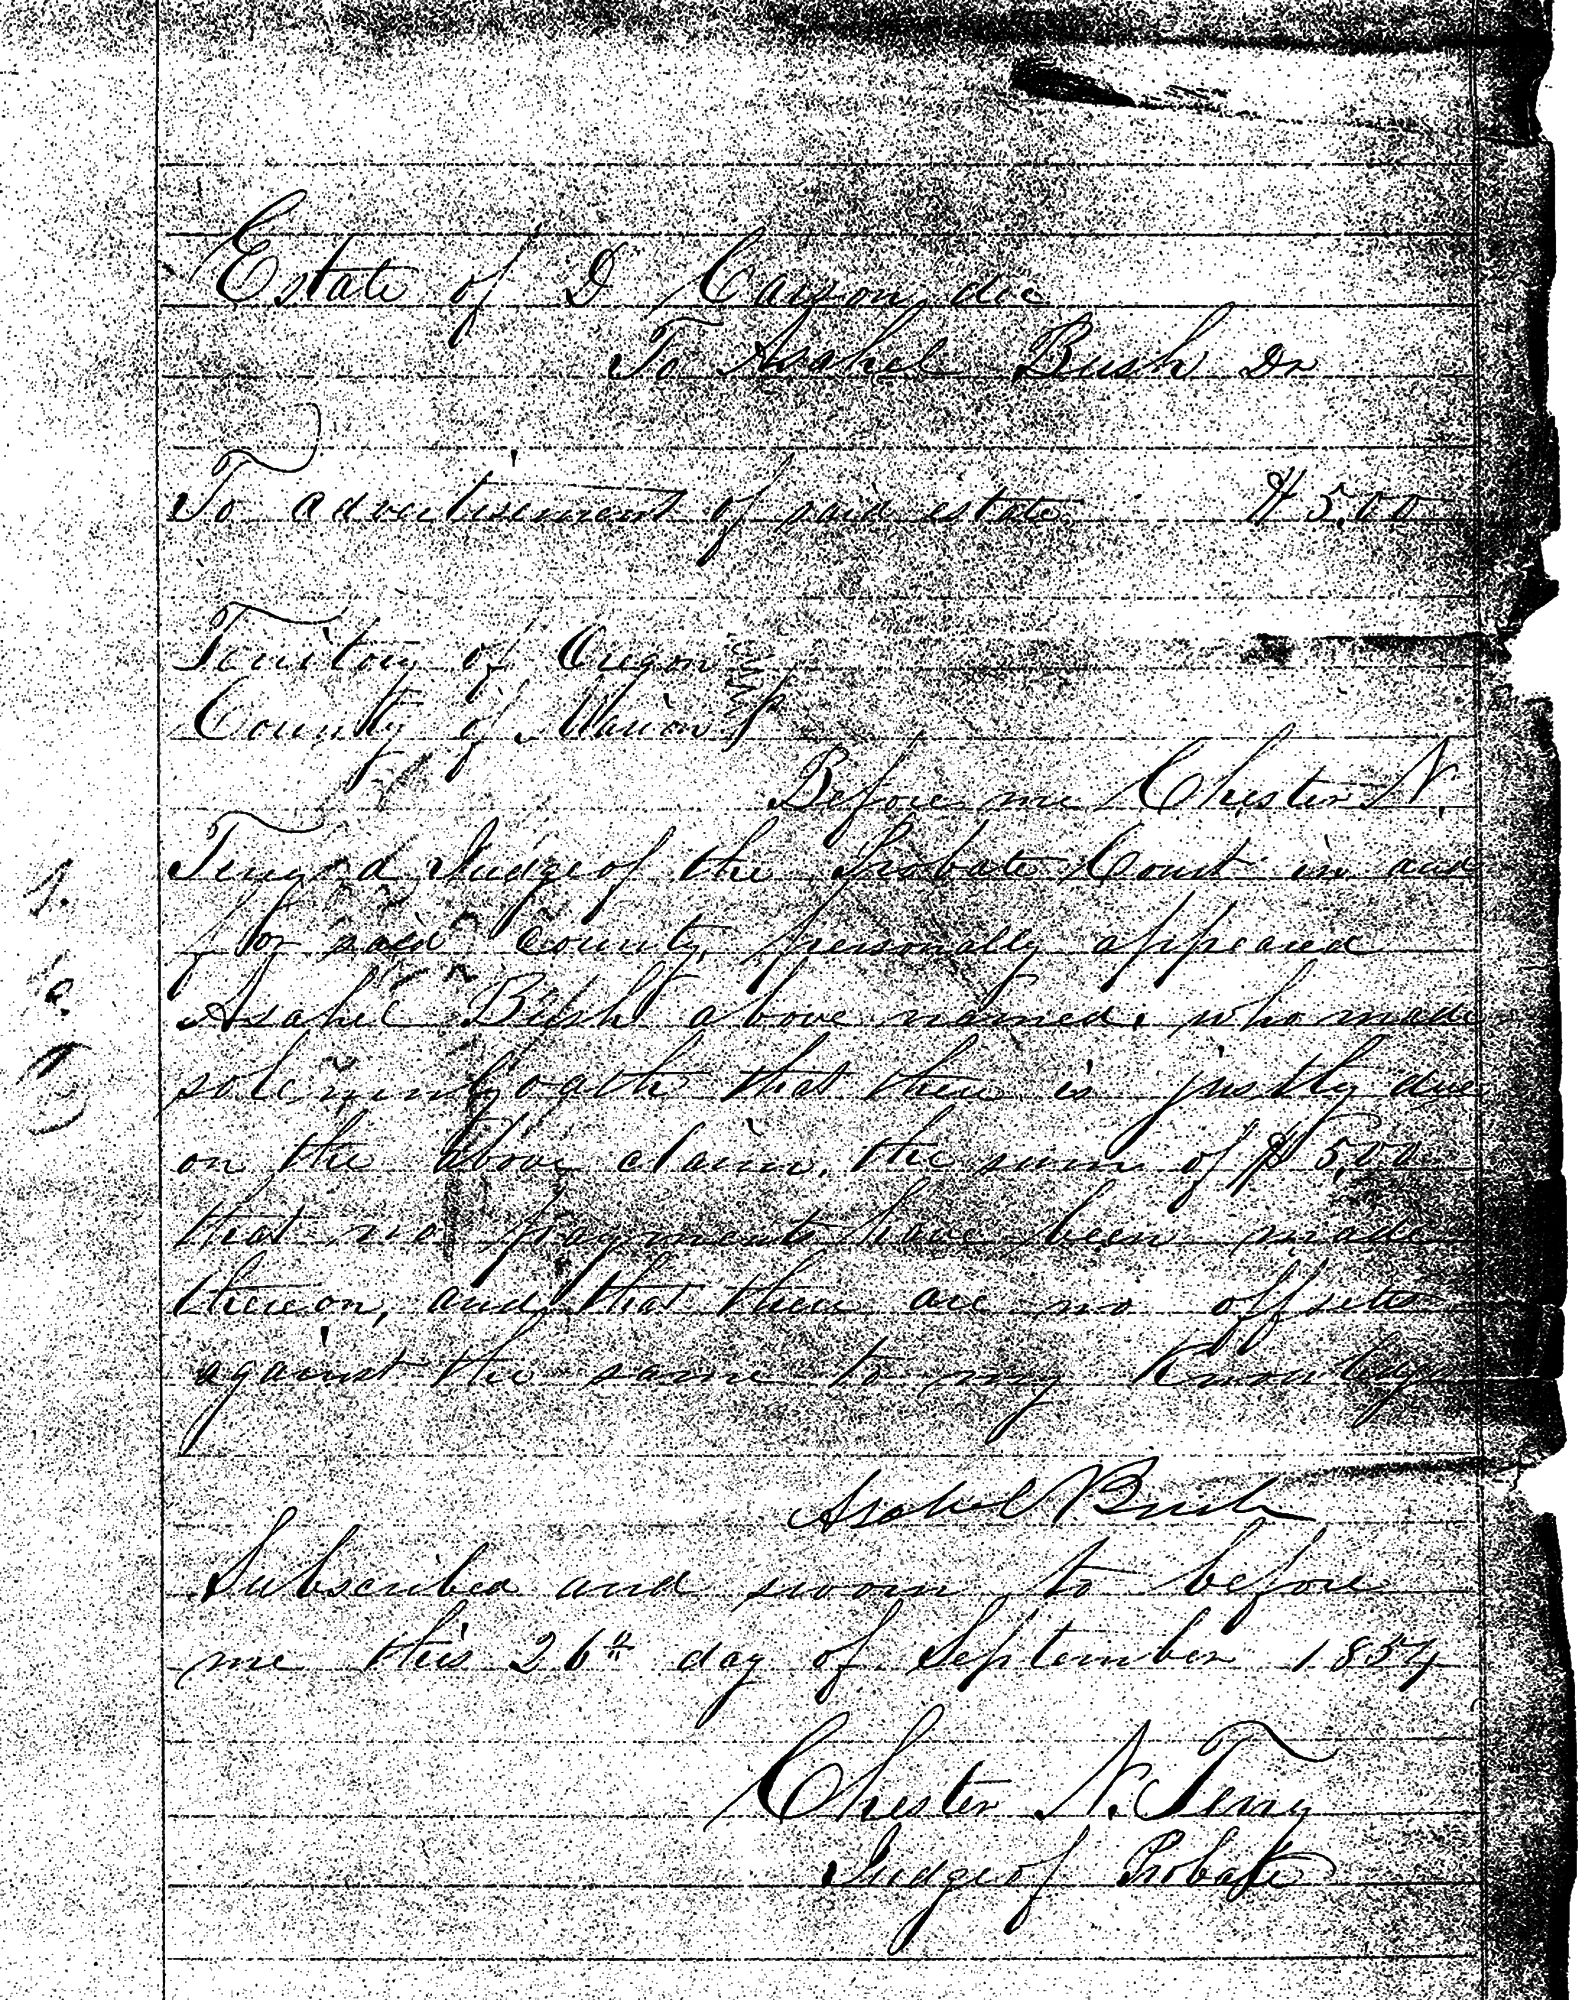 Estate of D Carson, dec
To Asahel Bush Dr
To advertisement of said estate $5,00
Territory of Oregon
County of Marion
Before me Chester N.
Terry Judge of the Probate Court in and
for said County, personally appeared
Asahel Bush above named, who made
solemn oath that there is justly due
on the above claim, the sum of $5,00
that no payments have been made
thereon, and that there are no offsets
against the same to my knowledge
Asahel Bush
Subscribed and sworn to before
me this 26th day of September 1854
Chester N. Terry
Judge of Probate